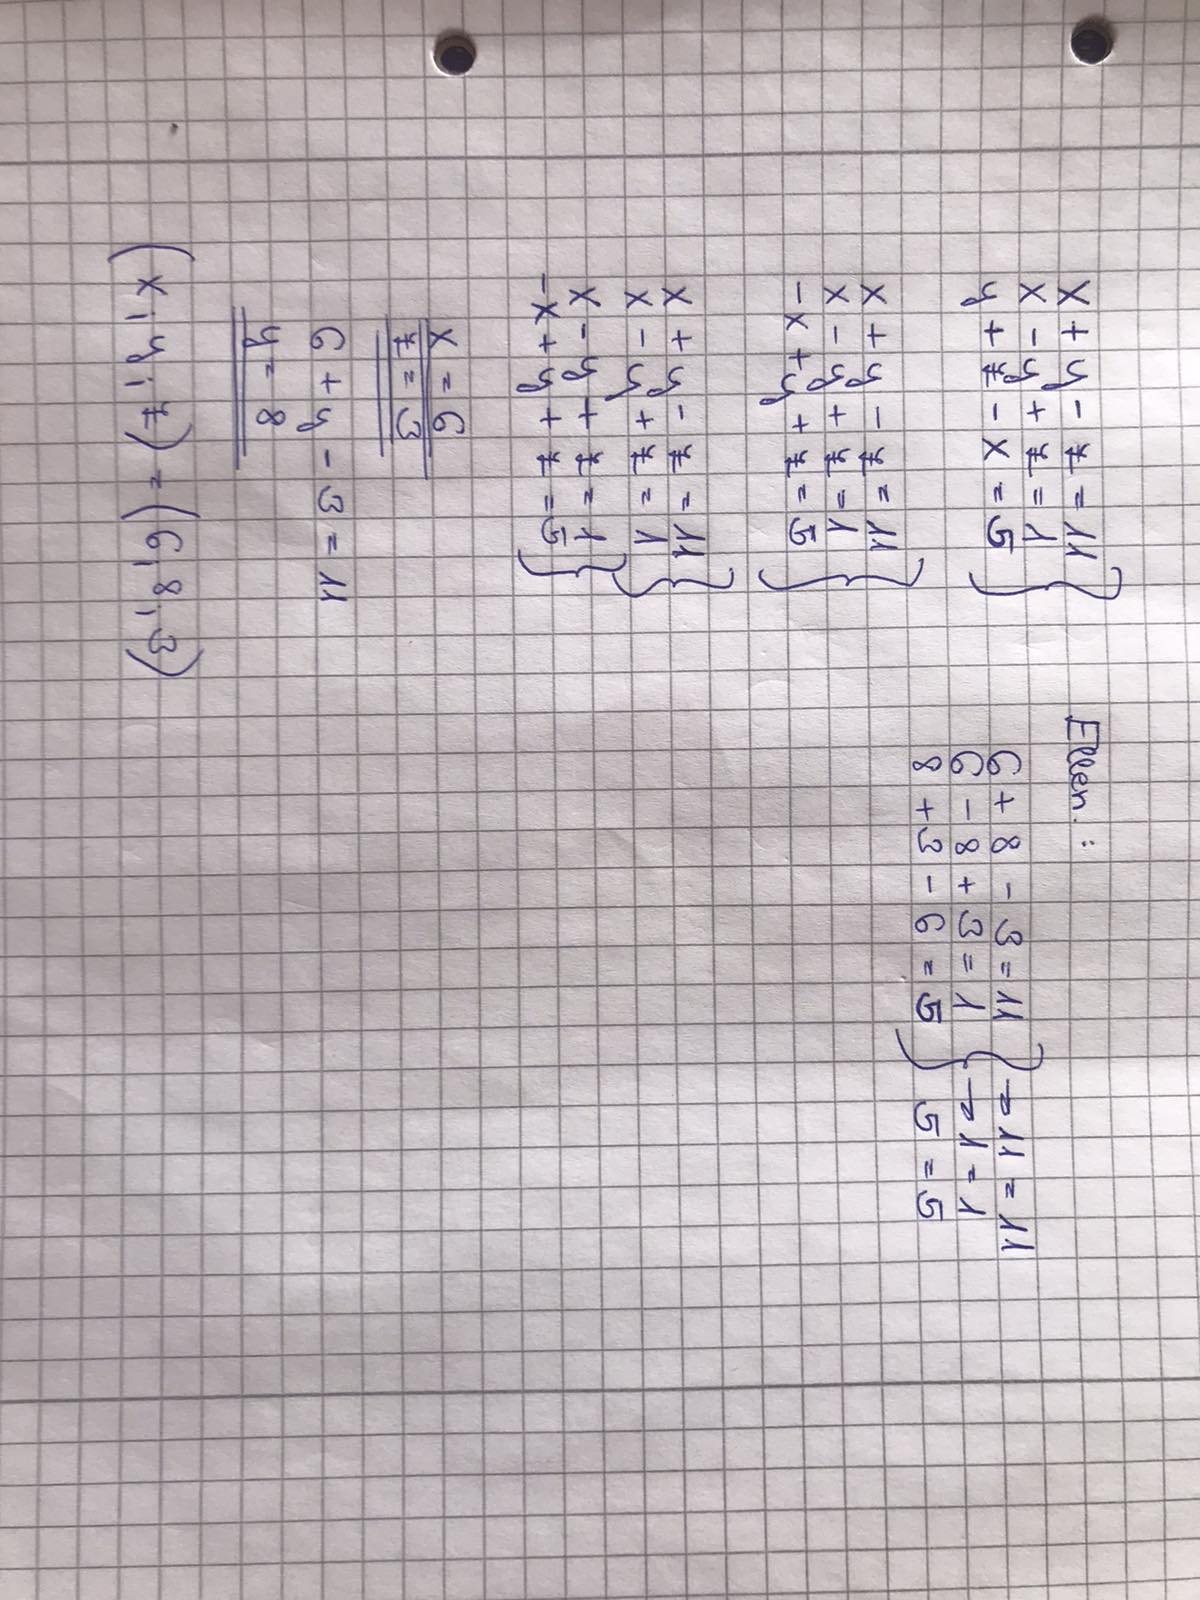 x + y - z = 11
x - y + z = 1
y + z - x = 5
x + y - z = 11
x - y + z = 1
-x + y + z = 5
x + y - z = 11
x - y + z = 1
x - y + z = 1
-x + y + z = 5
x = 6
z = 3
6 + y - 3 = 11
y = 8
(x; y; z) = (6; 8; 3)
Ellen.:
6 + 8 - 3 = 11 → 11 = 11
6 - 8 + 3 = 1 → 1 = 1
8 + 3 - 6 = 5 5 = 5